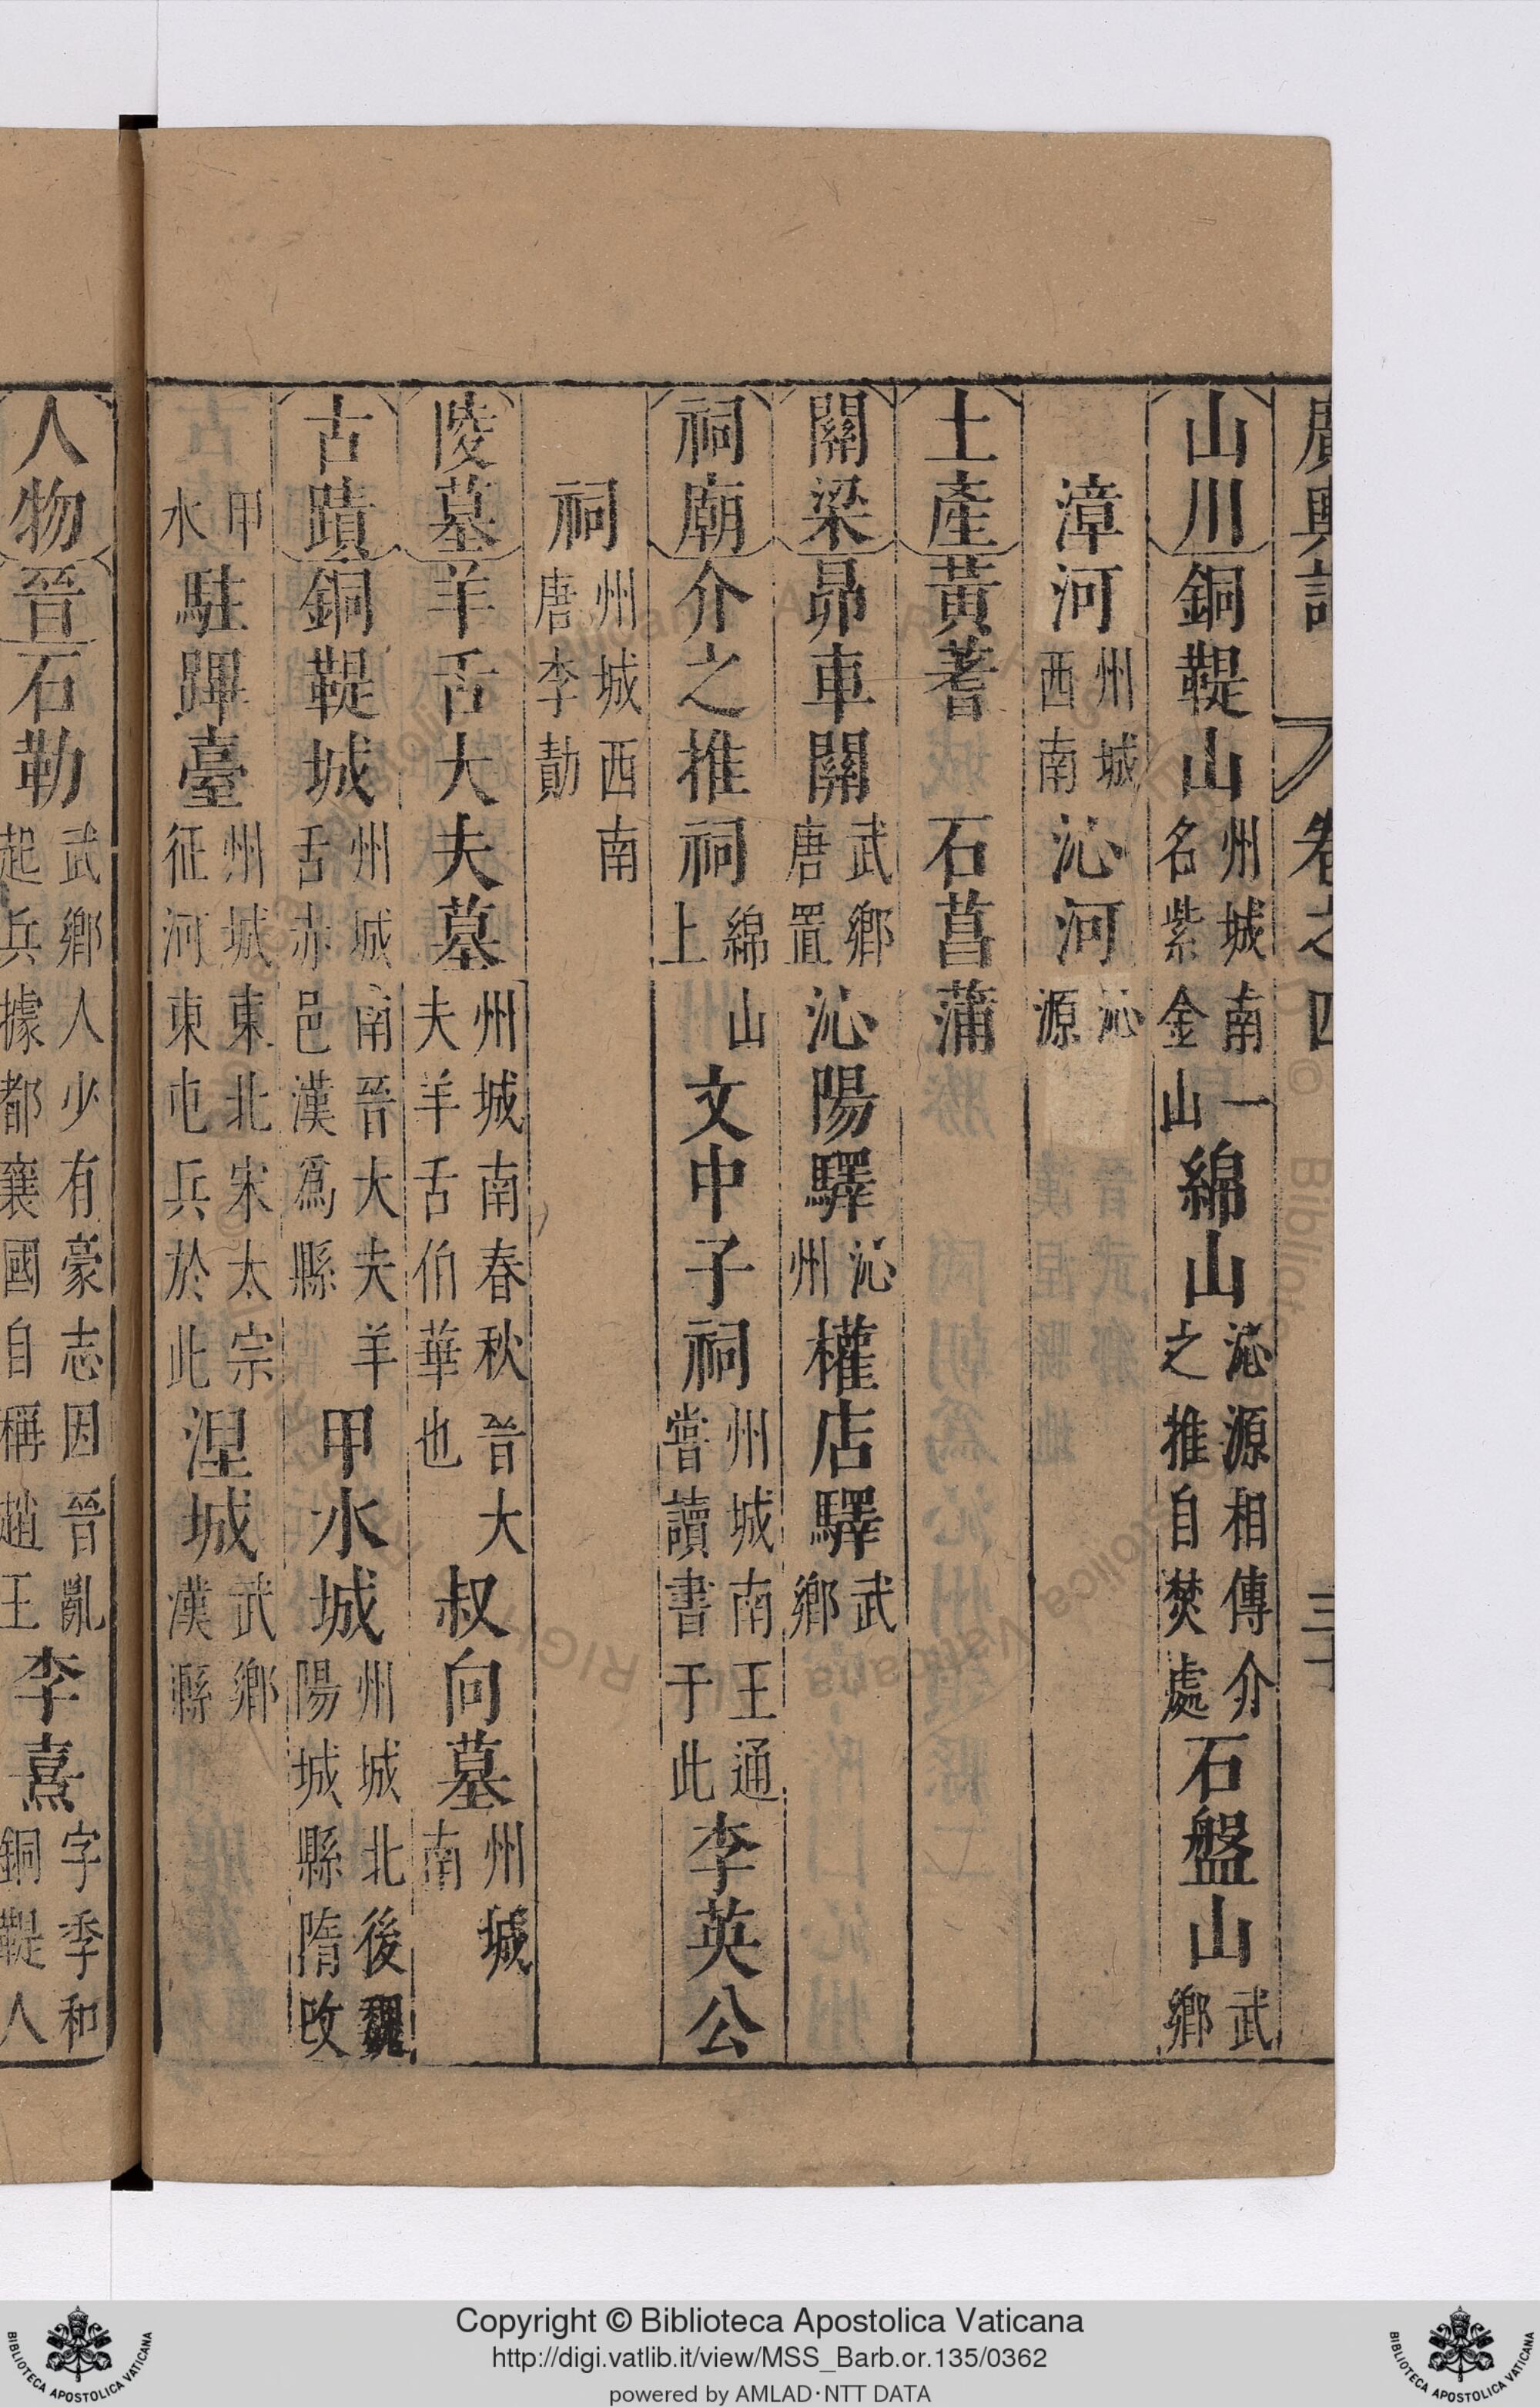 廣輿記 卷之四
山川銅鞮山州城南一名紫金山綿山沁源相傳介之推自焚處石盤山武鄉
漳河州城西南沁河沁源
土產黃耆石菖蒲
關梁昴車關武鄉唐置沁陽驛沁州權店驛武鄉
祠廟介之推祠綿山上文中子祠州城南王通嘗讀書于此李英公
祠州城西南唐李勣
陵墓羊舌大夫墓州城南春秋晉大夫羊舌伯華也叔向墓州城南
古蹟銅鞮城州城南晉大夫羊舌赤邑漢爲縣甲水城州城北後魏陽城縣隋改
甲水駐蹕臺州城東北宋太宗征河東屯兵於此涅城武鄉漢縣
人物晉石勒武鄉人少有豪志因晉亂起兵據都襄國自稱趙王李熹字季和銅鞮人
Copyright © Biblioteca Apostolica Vaticana
http://digi.vatlib.it/view/MSS_Barb.or.135/0362
powered by AMLAD·NTT DATA
BIBLIOTECA APOSTOLICA VATICANA
BIBLIOTECA APOSTOLICA VATICANA